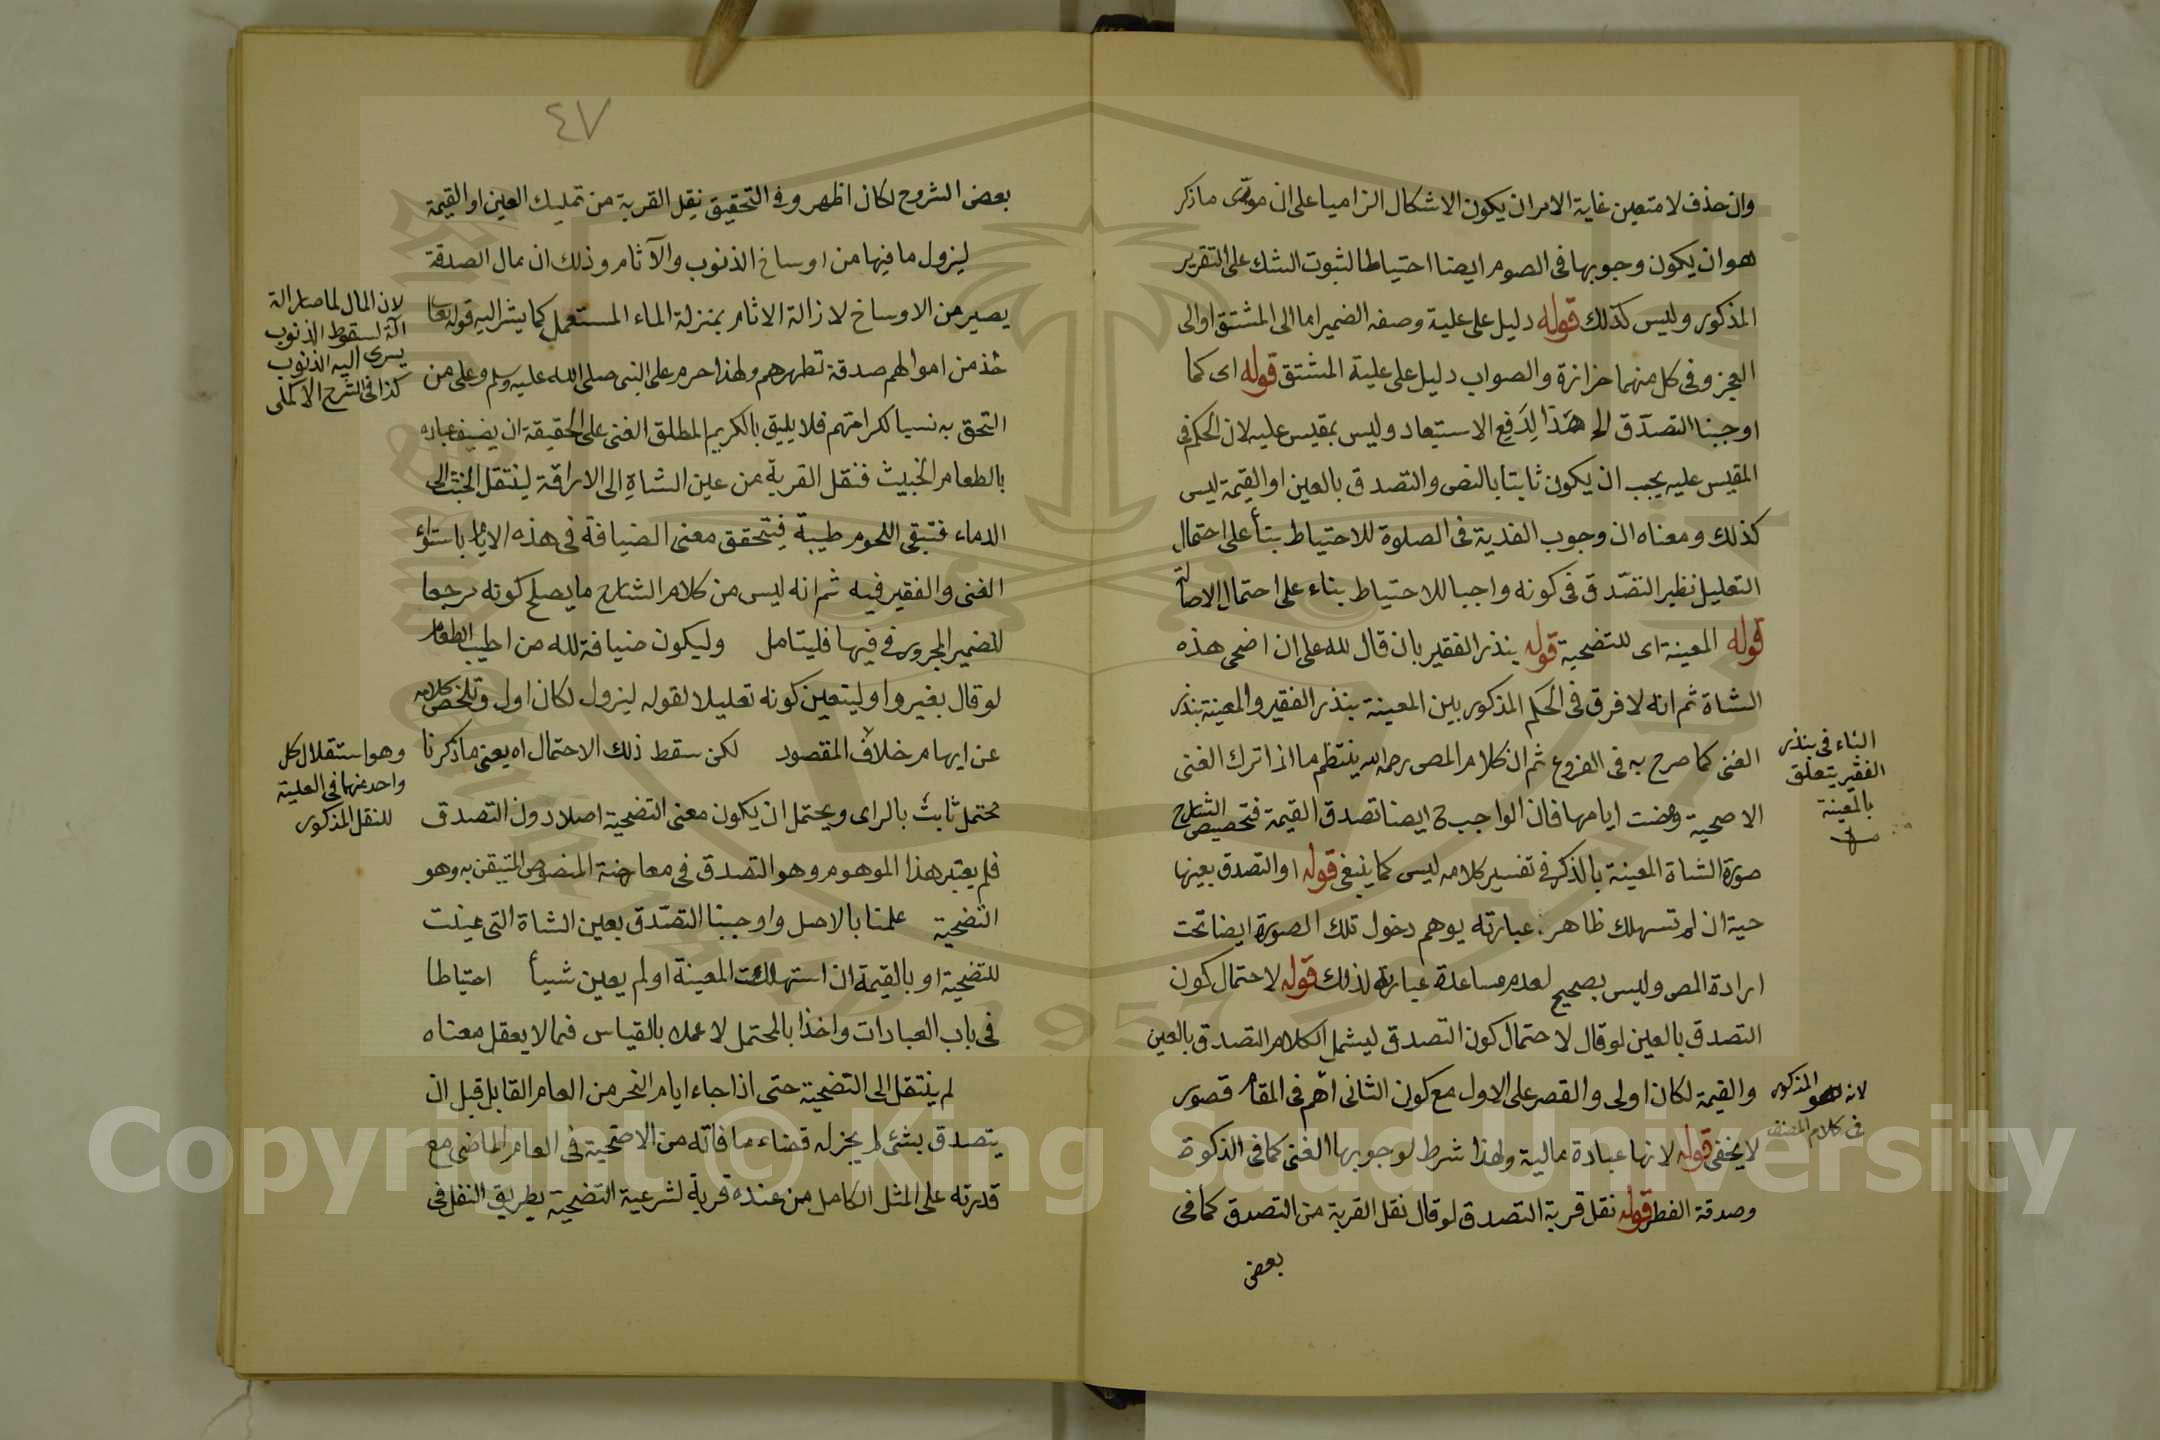 وان حذف لا متعين غاية الامر ان يكون الاشكال الزاميا على ان مودى ما ذكر
هو ان يكون وجوبها فى الصوم ايضا احتياطا لثبوت الشك على التقرير
المذكور وليس كذلك قوله دليل على علية وصفه الضمير اما الى المشتق او الى
العجز وفى كل منهما حزازة والصواب دليل على علية المشتق قوله اى كما
اوجبنا التصدق الخ هذا لدفع الاستبعاد وليس بمقيس عليه لان الحكم فى
المقيس عليه يجب ان يكون ثابتا بالنص والتصدق بالعين او القيمة ليس
كذلك ومعناه ان وجوب الفدية فى الصلوة للاحتياط بنأ على احتمال
التعليل نظير التصدق فى كونه واجبا للاحتياط بناء على احتمال الاصالة
قوله المعينة اى للتضحية قوله بنذر الفقير بان قال لله على ان اضحى هذه
الشاة ثم انه لا فرق فى الحكم المذكور بين المعينة بنذر الفقير والمعينة بنذر
الغنى كما صرح به فى الفروع ثم ان كلام المص رحمه الله ينتظم ما اذا ترك الغنى
الاضحية ومضت ايامها فان الواجب ح ايضا تصدق القيمة فتخصيص الشارح
صورة الشاة المعينة بالذكر فى تفسير كلامه ليس كما ينبغى قوله او التصدق بعينها
حية ان لم تستهلك ظاهر عبارته يوهم دخول تلك الصورة ايضا تحت
ارادة المص وليس بصحيح لعدم مساعدة عبارته لذلك قوله لاحتمال كون
التصدق بالعين لو قال لاحتمال كون التصدق ليشمل الكلام التصدق بالعين
والقيمة لكان اولى والقصر على الاول مع كون الثانى اهم فى المقام قصور
لا يخفى قوله لانها عبادة مالية ولهذا شرط لوجوبها الغنى كما فى الزكوة
وصدقة الفطر قوله نقل قربة التصدق لو قال نقل القربة من التصدق كما فى
بعض
الباء فى بنذر
الفقير يتعلق
بالمعينة
لانه هو المذكور
فى كلام المصنف
٤٧
بعض الشروح لكان اظهر وفى التحقيق نقل القربة من تمليك العين او القيمة
ليزول ما فيها من اوساخ الذنوب والآثام وذلك ان مال الصدقة
يصير من الاوساخ لازالة الاثام بمنزلة الماء المستعمل كما يشر اليه قوله تعا
خذ من اموالهم صدقة تطهرهم ولهذا حرم على النبى صلى الله عليه وسلم وعلى من
التحق به نسبا لكرامتهم فلا يليق بالكريم المطلق الغنى على الحقيقة ان يضيف عباده
بالطعام الخبيث فنقل القربة من عين الشاة الى الاراقة لينتقل الخبث الى
الدماء فتبقى اللحوم طيبة فيتحقق معنى الضيافة فى هذه الايام باستوء
الغنى والفقير فيه ثم انه ليس من كلام الشارح ما يصلح كونه مرجعا
للضمير المجرور فى فيها فليتامل وليكون ضيافة لله من اطيب الطعام
لو قال بغير واو ليتعين كونه تعليلا لقوله ليزول لكان اولى وتلخص كلامه
عن ايهام خلاف المقصود لكن سقط ذلك الاحتمال اه يعنى ما ذكرنا
محتمل ثابت بالراى ويحتمل ان يكون معنى التضحية اصلا دون التصدق
فلم يعتبر هذا الموهوم وهو التصدق فى معارضة المنصوص المتيقن به وهو
التضحية علمنا بالاصل واوجبنا التصدق بعين الشاة التى عينت
للتضحية او بالقيمة ان استهلكت المعينة او لم يعين شيأ احتياطا
فى باب العبادات واخذا بالمحتمل لا عملا بالقياس فيما لا يعقل معناه
لم ينتقل الى التضحية حتى اذا جاء ايام النحر من العام القابل قبل ان
يتصدق بشئ لم يجز له قضاء ما فاته من الاضحية فى العام الماضى مع
قدرته على المثل الكامل من عنده قربة لشرعية التضحية بطريق النفل فى
لان المال لما صار الة
الة لسقوط الذنوب
يسرى اليه الذنوب
كذا فى الشرح الاكملى
وهو استقلال كل
واحد منهما فى العلية
للنقل المذكور
1957
Copyright © King Saud University